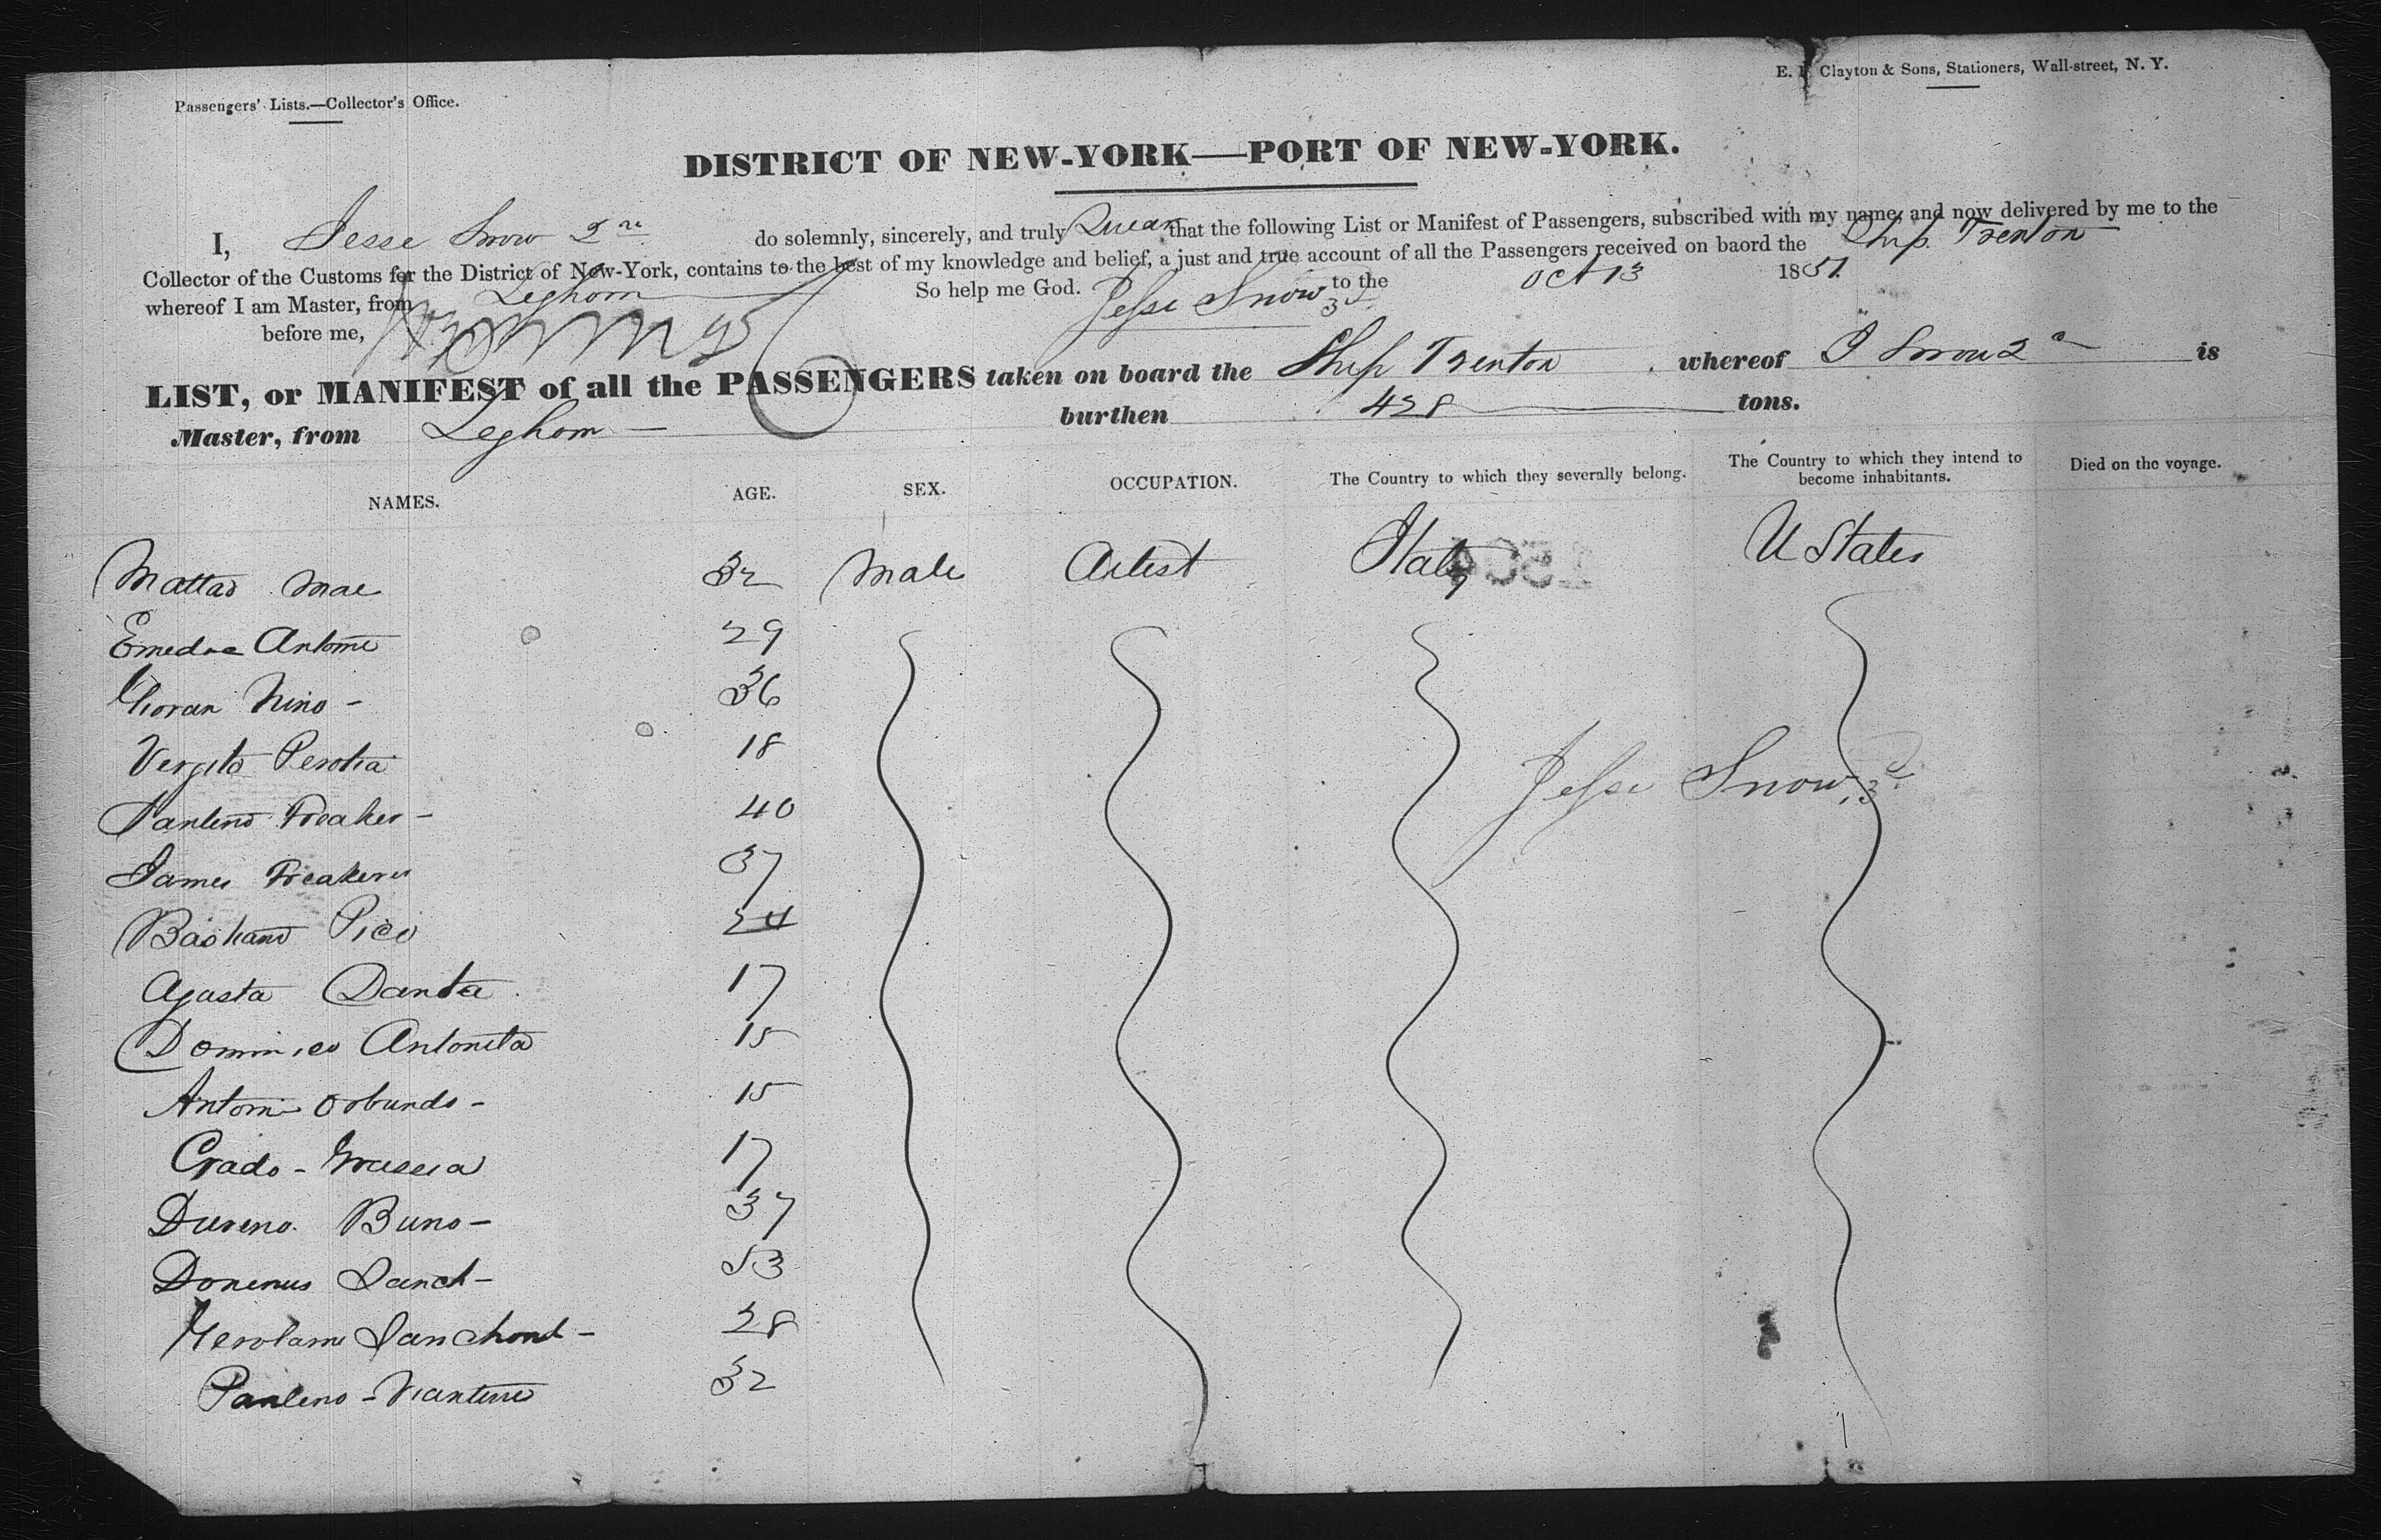 E. Clayton & Sons, Stationers, Wall-street, N. Y.
Passengers' Lists.—Collector's Office.
DISTRICT OF NEW-YORK—PORT OF NEW-YORK.
I, Jesse Snow 2 do solemnly, sincerely, and truly Swear that the following List or Manifest of Passengers, subscribed with my name, and now delivered by me to the
Collector of the Customs for the District of New-York, contains to the best of my knowledge and belief, a just and true account of all the Passengers received on baord the Ship Trenton
whereof I am Master, from Leghorn So help me God. to the Oct 13 1851
before me, Jesse Snow 3d
LIST, or MANIFEST of all the PASSENGERS taken on board the Ship Trenton whereof J Snow 2 is
Master, from Leghorn burthen 428 tons.
NAMES. AGE. SEX. OCCUPATION. The Country to which they severally belong. The Country to which they intend to become inhabitants. Died on the voyage.
Mattao Mae 32 Male Artist Italy U States
Antoni 29
Nino - 36
Vergito Perotia 18
40
James 37
Pico 24
Agasta Danta 17
Dominico Antonita 15
Antoni Orbundo - 15
Grado - 17
Dureno Buno - 37
Donenus 53
28
Panleno - 32
Jesse Snow 3d